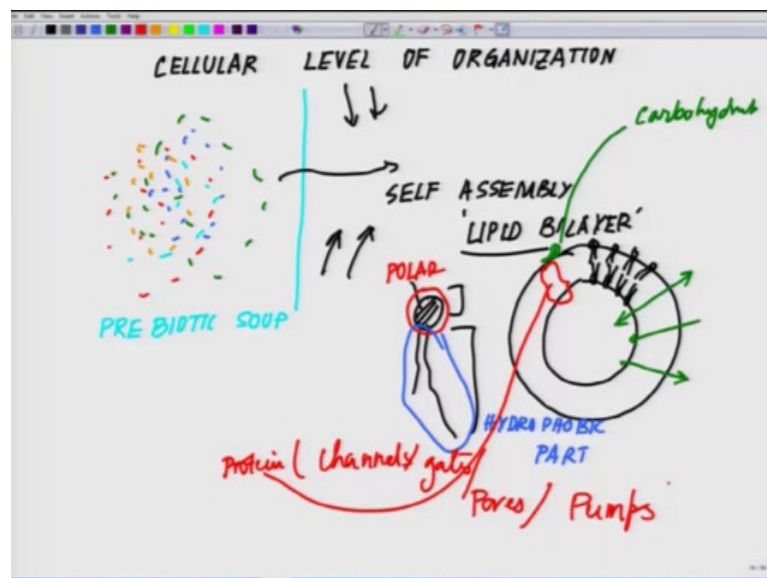 CELLULAR LEVEL OF ORGANIZATION
Carbohydrat
SELF ASSEMBLY
'LIPID BILAYER'
POLAR
PRE BIOTIC SOUP
HYDROPHOBIC
PART
Protein ( Channels/ gates/
Pores/ Pumps